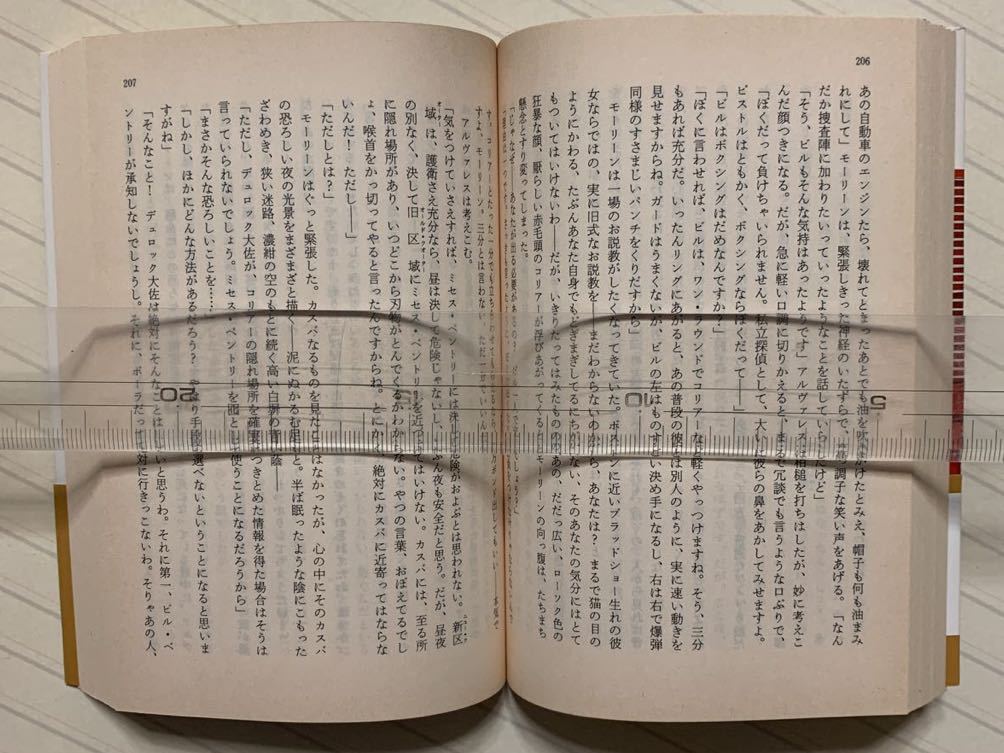 206
あの自動車のエンジンたら、壊れてとまったあとでも油を吹きかけたとみえ、帽子も何も油まみ
れにして」モーリーンは、緊張しきった神経のいたずらで、調子な笑い声をあげる。「なん
だか捜査陣に加わりたいっていったようなことを話していらしたけど」
「そう、ビルもそんな気持はあったようです」アルヴァレスは相槌を打ちはしたが、妙に考えこ
んだ顔つきになる。だが、急に軽い口調に切りかえると、まるで冗談でも言うような口ぶりで、
「ぼくだって負けちゃいられません。私立探偵として、大いに彼らの鼻をあかしてみせますよ。
ピストルはともかく、ボクシングならぼくだって――」
「ビルはボクシングはだめなんですか？」
「ぼくに言わせれば、ビルは、ワン・ラウンドでコリアーなど軽くやっつけますね。そう、三分
もあれば充分だ。いったんリングにあがると、あの普段の彼とは別人のように、実に速い動きを
見せますからね。ガードはうまくないが、ビルの左はものすごい決め手になるし、右は右で爆弾
同様のすさまじいパンチをくりだすから」
モーリーンは一場のお説教がしたくなってきていた。ボストンに近いブラッドショー生れの彼
女ならではの、実に旧式なお説教を――まだわからないのかしら、あなたは？　まるで猫の目の
ようにかわる、たぶんあなた自身でもどぎまぎしてるにちがいない、そのあなたの気分にはとて
もついてはいけないわ――だが、いきりたってはみたものの、あの、だだっ広い、ローック色の
狂暴な顔、厭らしい赤毛頭のコリアーが浮びあがってくると、モーリーンの向っ腹は、たちまち
懸念とすり変ってしまった。
「じゃなぜ、あなたが出る必要があるの？
207
アルヴァレスは考えこむ。
「気をつけていさえすれば、ミセス・ペントリーには決して危険がおよぶとは思われない。新区
域は、護衛さえ充分なら、昼は決して危険じゃないし、たぶん夜も安全だと思う。だが、昼夜
の別なく、決して旧区域にミセス・ペントリーを近づけてはいけない。カスバには、至る所
に隠れ場所があり、いつどこから刃物がとんでくるかわからない。やつの言葉、おぼえてるでし
ょ、喉首をかっ切ってやると言ったんですからね。とにかく、絶対にカスバに近寄ってはならな
いんだ！　ただし――」
「ただしとは？」
モーリーンはぐっと緊張した。カスバなるものを見たことはなかったが、心の中にそのカスバ
の恐ろしい夜の光景をまざまざと描く――泥にぬかるむ足もと。半ば眠ったような陰にこもった
ざわめき、狭い迷路、濃紺の空のもとに続く高い白塀の青い陰――
「ただし、デュロック大佐が、コリアーの隠れ場所を確実につきとめた情報を得た場合はそうは
言っていられないでしょう。ミセス・ペントリーを囮として使うことになるだろうから」
「まさかそんな恐ろしいことを……」
「しかし、ほかにどんな方法があるだろう？　やはり手段を選べないということになると思いま
すがね」
「そんなこと！　デュロック大佐は絶対にそんなことはしないと思うわ。それに第一、ビル・ペ
ントリーが承知しないでしょうし。それに、ポーラだって絶対に行きっこないわ。そりゃあの人、
5
10
20